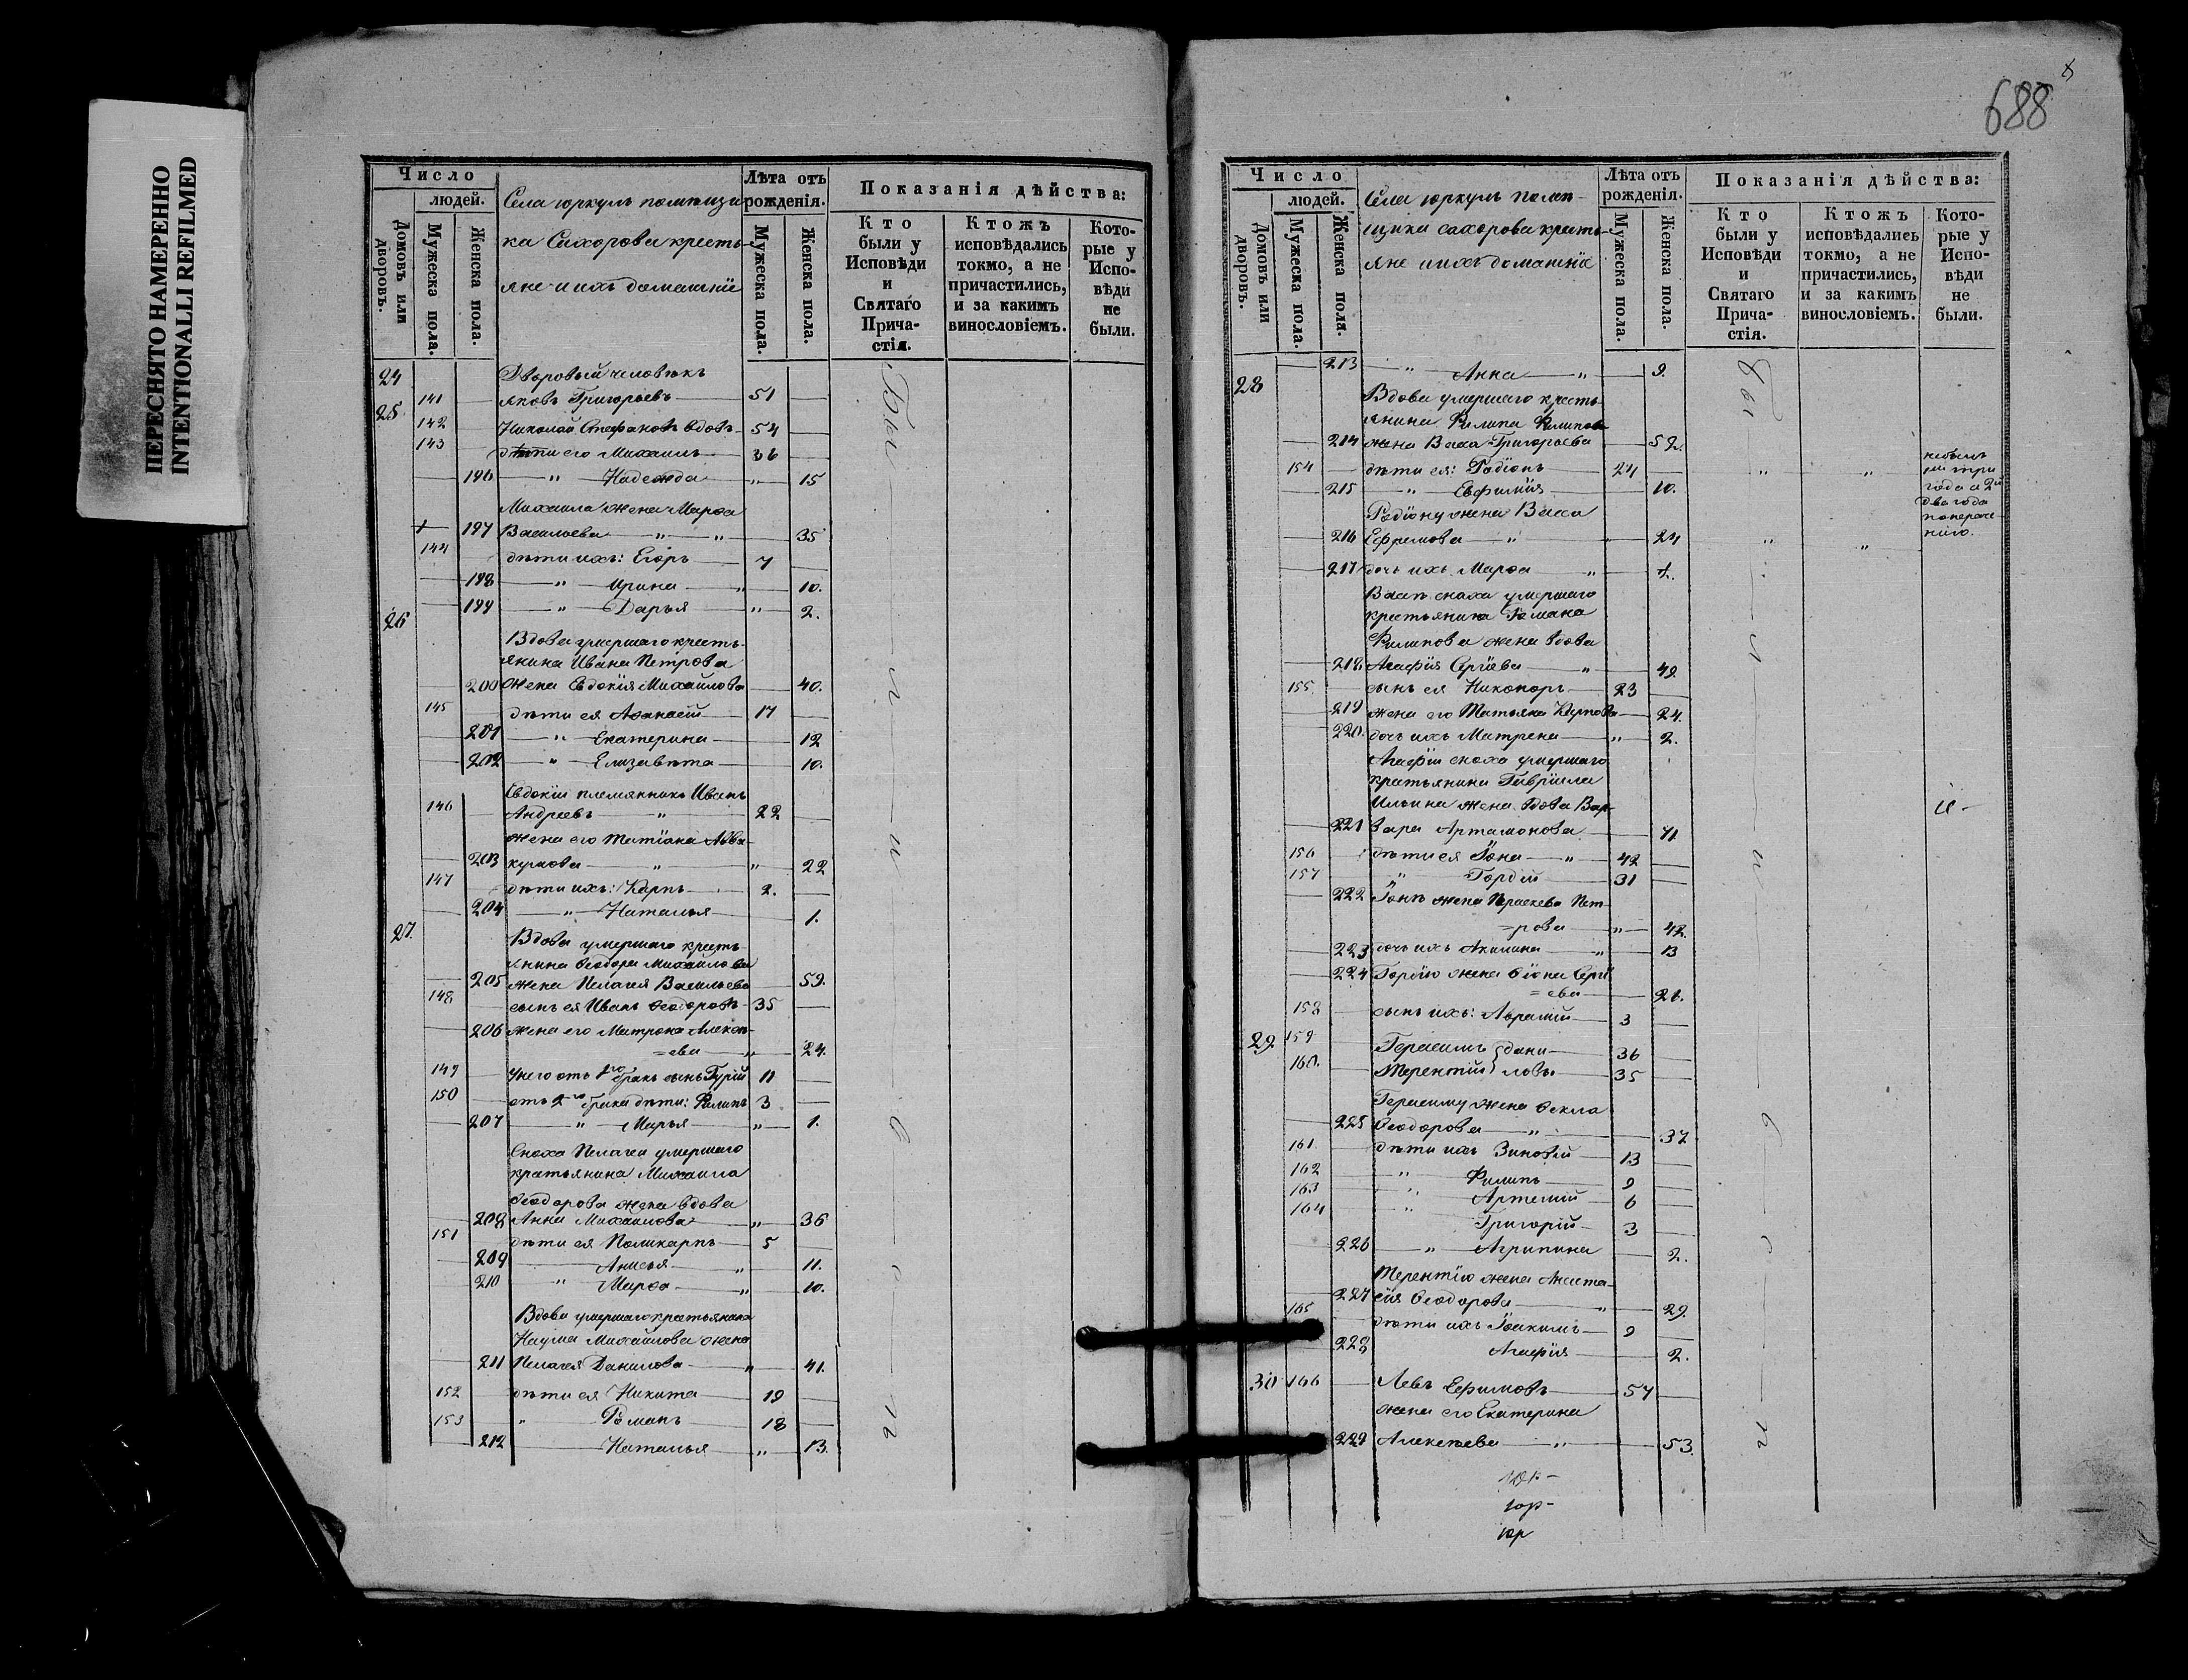 ПЕРЕСНЯТО НАМЕРЕННО
INTENTIONALLI REFILMED
Число
людей.
Домовъ или дворовъ.
Мужеска пола.
Женска пола.
Села юркуль помѣщи
ка Сахорова кресть
яне и ихъ домашніе
Лѣта отъ рожденія.
Мужеска пола.
Женска пола.
Показанія дѣйства:
Кто были у Исповѣди и Святаго Прича-стія.
Ктожъ исповѣдались токмо, а не причастились, и за какимъ винословіемъ.
Кото-рые у Испо-вѣди не были.
24 Дворовый человѣкъ
141 яковъ Григорьевъ 51
25 142 Николай Стефановъ вдовъ 54
143 дѣти его Михаилъ 36
196 " Надежда " 15
Михаила жена Марѳа
197 Васильева " " 35
144 дѣти ихъ: Егоръ 7
198 " Ирина " 10.
199 " Дарья " 2.
26 Вдова умершаго кресть
янина Ивана Петрова
200 жена Евдокія Михайлова 40.
145 дѣти ея Аѳанасій 17
201 " Екатерина 12
202 " Елизавѣта 10.
Евдокіи племянникъ Иванъ
146 Андреевъ " 22
жена его Татіана Авва
203 кумова " " 22
147 дѣти ихъ: Карпъ 2.
204 " Наталья 1.
27. Вдова умершаго кресть
янина Ѳеодора Михайлова
205 жена Пелагея Васильева 59.
148 сынъ ея Иванъ Ѳеодоровъ 35
206 жена его Матрона Алексѣ-
=ева " 24.
149 у него отъ 1го брака сынъ Гурій 11
150 отъ 2го брака дѣти: Филипъ 3
207 " Марья " 1.
Сноха Пелагеи умершаго
крестьянина Михаила
Ѳеодорова жена вдова
208 Анна Михайлова " 36
151 дѣти ея Поликарпъ 5
209 Анисья " 11.
210 " Марѳа " 10.
Вдова умершаго крестьянина
Наума Михайлова жена
211 Пелагея Данилова " 41.
152 дѣти ея Никита 19
153 " Романъ 18
212 Наталья " 13.
Бы л и в с ѣ
688
Число
людей.
Домовъ или дворовъ.
Мужеска пола.
Женска пола.
Села юркуль помѣ-
щика сахорова кресть-
яне и ихъ домашніе
Лѣта отъ рожденія.
Мужеска пола.
Женска пола.
Показанія дѣйства:
Кто были у Исповѣди и Святаго Прича-стія.
Ктожъ исповѣдались токмо, а не причастились, и за какимъ винословіемъ.
Кото-рые у Испо-вѣди не были.
213 " Анна " 9.
28 Вдова умершаго кресть
янина Филипа Филипова
214 жена Васса Григорьева 52.
154 дѣти ея: Родіонъ 24 " "
215 " Евфимія 10.
Родіону жена Васса
216 Ефремова " 24 " "
217 дочь ихъ Марѳа "
Вассѣ сноха умершаго
крестьянина Романа
Филипова жена вдова
218 Агафія Сергіева " 49.
155. сынъ ея Никоноръ 23
219 жена его Татьяна Карпова 24.
220. дочь ихъ Матрена " 2.
Агафіи сноха умершаго
крестьянина Гавріила
Ильина жена вдова Вар-
221 вара Артамонова 71
156 дѣти ея Іона " 42
157 " Гордій 31
222 Іонѣ жена Параскева Пет-
=рова " 42.
223 дочь ихъ Акилина " 13
224 Гордію жена Ѳіона Сергі
=ева 28.
158 сынъ ихъ: Аврамій 3
29 159 Герасимъ дани- 36
160. Терентій ловы 35
Герасиму жена Ѳекла
225 Ѳеодорова " 37
161. дѣти ихъ Зиновій 13
162 " Филипъ 9
163 " Артемій 6
164 " Григорій 3
226 " Агрипина 2.
Терентію жена Анаста-
227 сія Ѳеодорова " 29.
165 дѣти ихъ Іоакимъ 9
228 Агафія 2.
30 166 Левъ Ефимовъ 57
жена его Екатерина
229 Алексѣева " 53.
небылъ
три
года а 2й
два года
юр-
юр-
юр